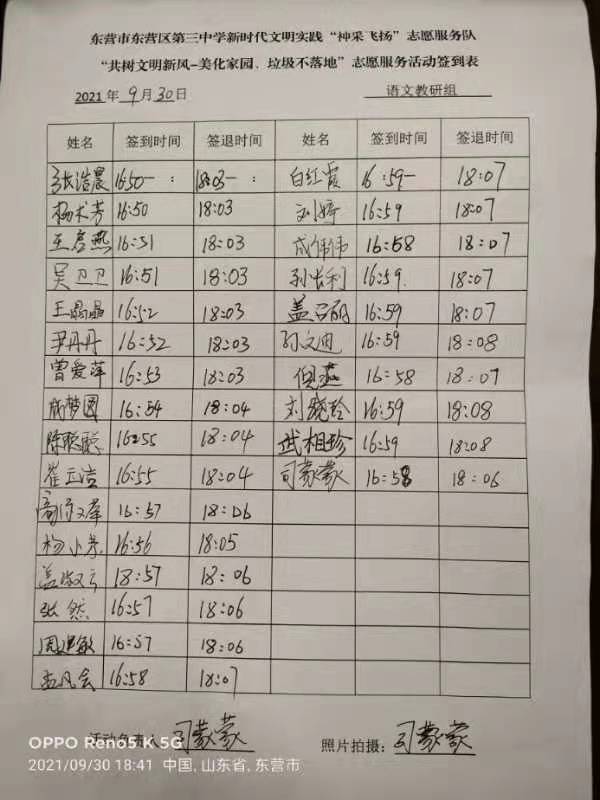 东营市东营区第三中学新时代文明实践“神采飞扬”志愿服务队
“共树文明新风-美化家园、垃圾不落地”志愿服务活动签到表
2021 年 9 月 30 日 语文教研组
姓名 签到时间 签退时间 姓名 签到时间 签退时间
张浩晨 16:50 — : 18:03 — : 白红霞 16:59 — 18:07
杨术芳 16:50 18:03 刘婷 16:59 18:07
王彦燕 16:51 18:03 成伟伟 16:58 18:07
吴卫卫 16:51 18:03 孙长利 16:59. 18:07
王晶晶 16:52 18:03 盖召丽 16:59 18:07
尹丹丹 16:52 18:03 孙文迪 16:59 18:08
曾爱萍 16:53 18:03 倪燕 16:58 18:07
成梦圆 16:54 18:04 刘晓玲 16:59 18:08
陈聪聪 16:55 18:04 武相珍 16:59 18:08
崔云洁 16:55 18:04 司蒙蒙 16:58 18:06
16:57 18:06
杨小芹 16:56 18:05
盖淑云 18:57 18:06
张然 16:57 18:06
周建敏 16:57 18:06
孟凡会 16:58 18:07
活动负责人 司蒙蒙 照片拍摄： 司蒙蒙
OPPO Reno5 K 5G
2021/09/30 18:41 中国, 山东省, 东营市